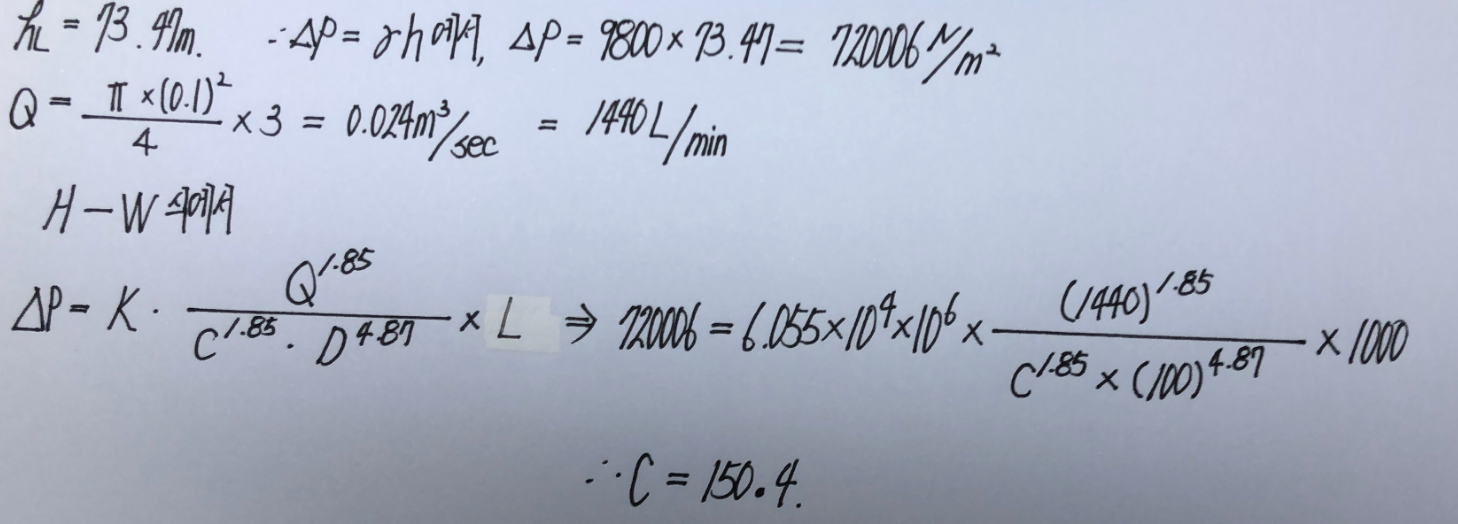 h_L = 73.47m. ∴ΔP = γh에서, ΔP = 9800 × 73.47 = 720006 N/m²
Q = π×(0.1)²/4 × 3 = 0.024m³/sec = 1440L/min
H-W식에서
ΔP = K · Q^1.85/(C^1.85 · D^4.87) × L ⇒ 720006 = 6.055×10⁴×10⁶ × (1440)^1.85/(C^1.85 × (100)^4.87) × 1000
∴C = 150.4.